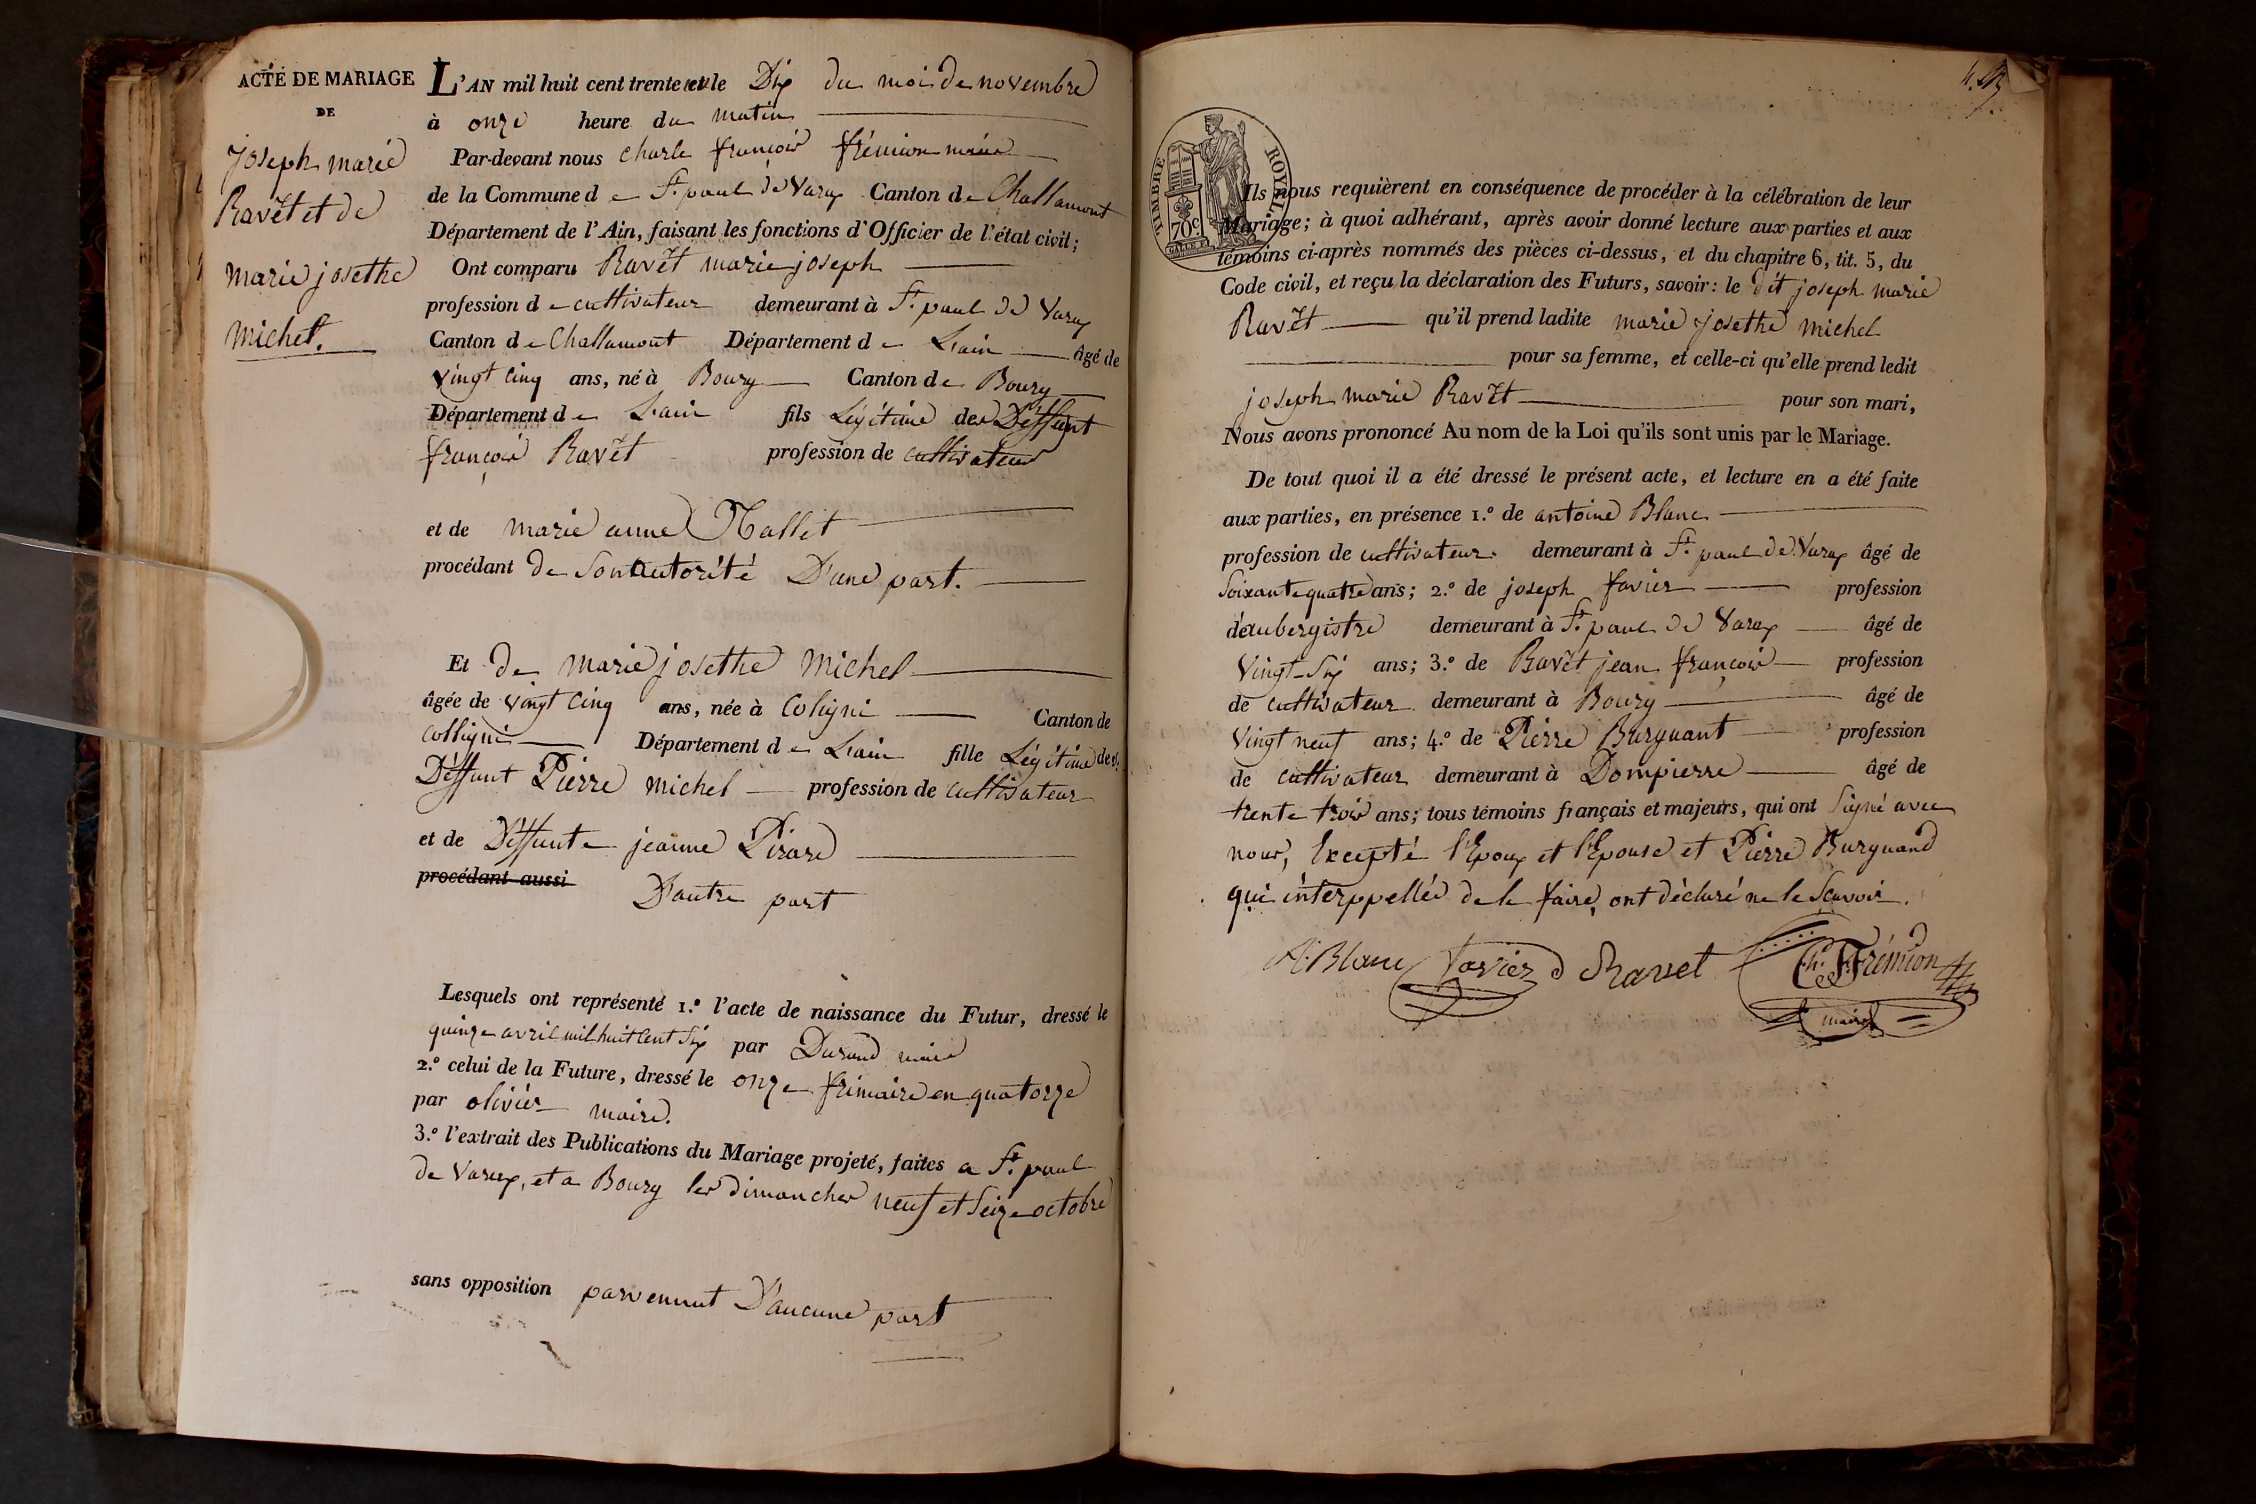 ACTE DE MARIAGE
DE
Joseph marie
Ravet et de
marie josethe
michel.
L'AN mil huit cent trente et le Dix du mois de novembre
à onze heure du matin
Par-devant nous Charle françois frémion maire
de la Commune de St. paul de Varax Canton de Challamont
Département de l'Ain, faisant les fonctions d'Officier de l'état civil;
Ont comparu Ravet marie joseph
profession de cultivateur demeurant à St. paul de Varax
Canton de Challamont Département de L'ain âgé de
vingt cinq ans, né à Bourg Canton de Bourg
Département de L'ain fils Légitime de Déffunt
françois Ravet profession de cultivateur
et de marie anne Nallet
procédant de Son autorité D'une part.
Et de marie josethe michel
âgée de vingt cinq ans, née à Coligni Canton de
Colligni Département de L'ain fille Légitime de
Déffunt Pierre michel profession de cultivateur
et de Déffunte jeanne Pirard
procédant aussi
D'autre part
Lesquels ont représenté 1.º l'acte de naissance du Futur, dressé le
quinze avril mil huit cent Six par Durand maire
2.º celui de la Future, dressé le onze frimaire en quatorze
par olivier maire.
3.º l'extrait des Publications du Mariage projeté, faites a St. paul
de Varax, et a Bourg les dimanches neuf et Seize octobre
sans opposition parvennut D'aucune part
TIMBRE ROYAL
70c
Ils nous requièrent en conséquence de procéder à la célébration de leur
Mariage; à quoi adhérant, après avoir donné lecture aux parties et aux
témoins ci-après nommés des pièces ci-dessus, et du chapitre 6, tit. 5, du
Code civil, et reçu la déclaration des Futurs, savoir: le dit joseph marie
Ravet qu'il prend ladite marie josethe michel
pour sa femme, et celle-ci qu'elle prend ledit
joseph marie Ravet pour son mari,
Nous avons prononcé Au nom de la Loi qu'ils sont unis par le Mariage.
De tout quoi il a été dressé le présent acte, et lecture en a été faite
aux parties, en présence 1.º de antoine Blanc
profession de cultivateur demeurant à St. paul de Varax âgé de
Soixante quatre ans; 2.º de joseph favier profession
d'aubergistre demeurant à St. paul de Varax âgé de
Vingt-Six ans; 3.º de Ravet jean françois profession
de cultivateur demeurant à Bourg âgé de
Vingt neuf ans; 4.º de Pierre Burguant profession
de cultivateur demeurant à Dompierre âgé de
trente trois ans; tous témoins français et majeurs, qui ont Signé avec
nous, Excepté l'Epoux et l'Epouse et Pierre Burguand
qui interppellés de le faire, ont déclaré ne le Scavoir.
A. Blanc favier Ravet Ch. F. Frémion
maire